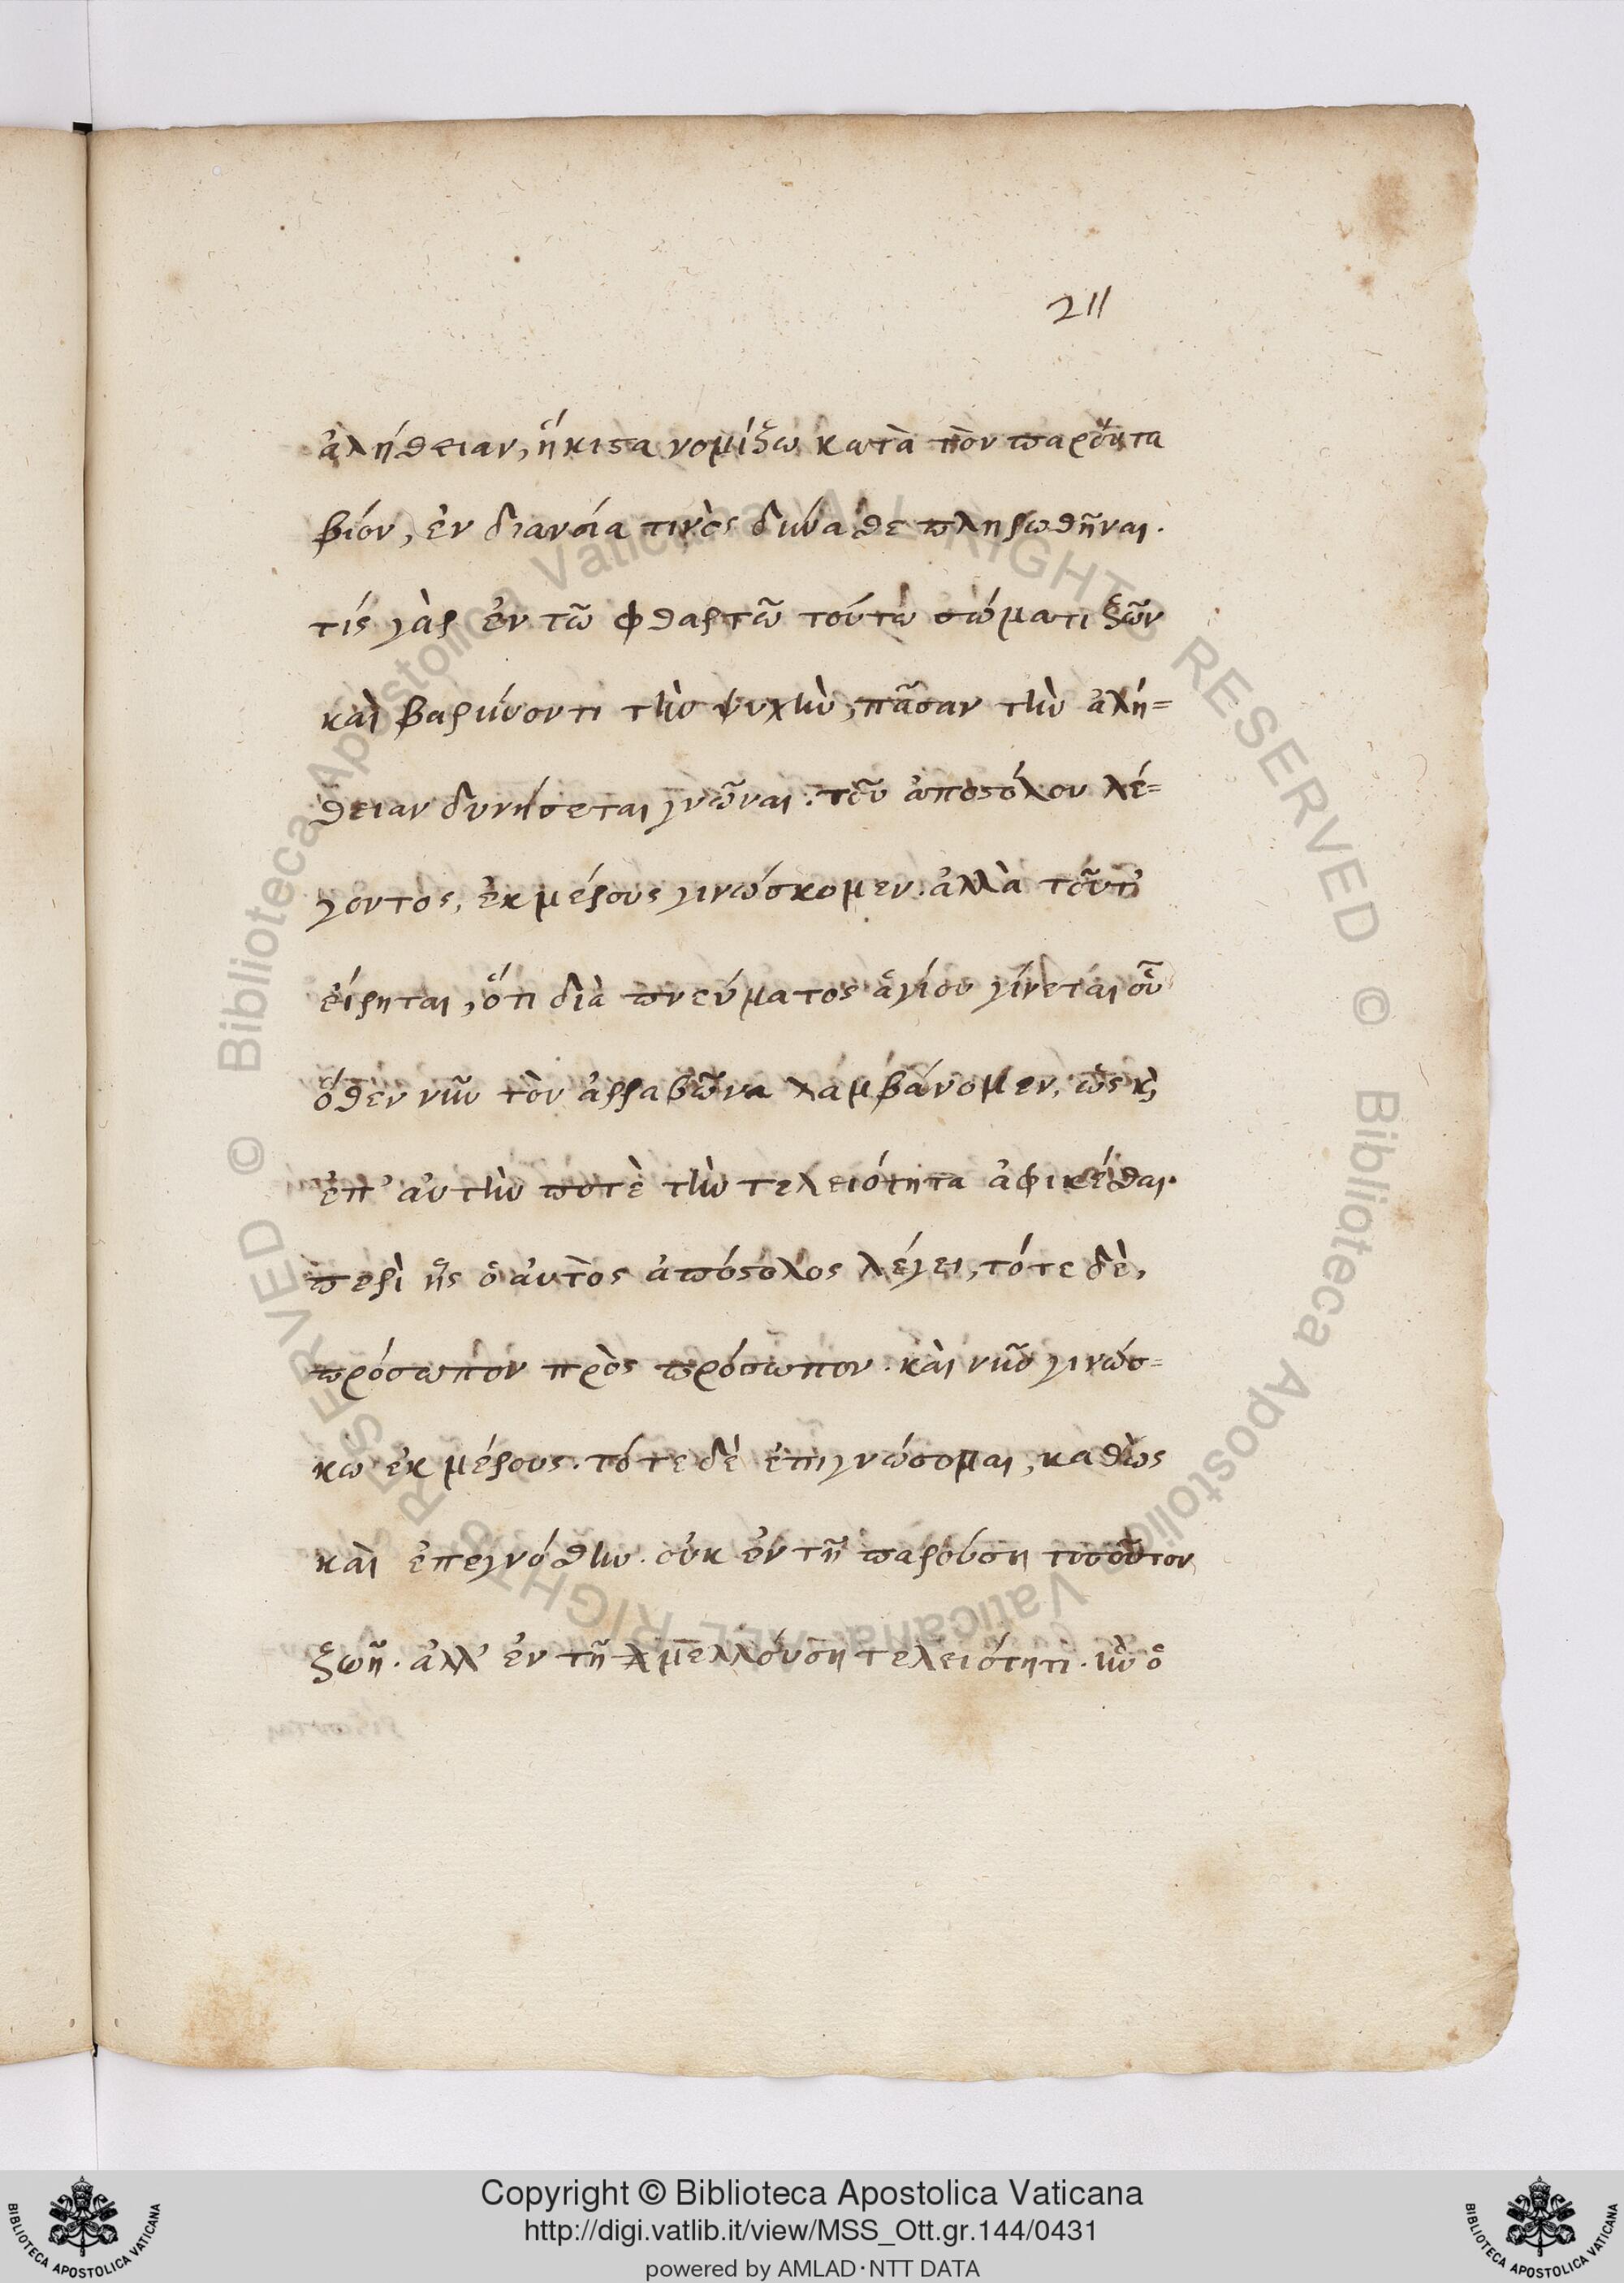 211
ἀλήθειαν, ἥκιστα νομίζω κατὰ τὸν παρόντα
βίον, ἐν διανοία τινὸς δύναθε πληρωθῆναι.
τίς γὰρ ἐν τῶ φθαρτῶ τούτω σώματι ζῶν
καὶ βαρύνοντι τὴν ψυχὴν, πᾶσαν τὴν ἀλή=
θειαν δυνήσεται γνῶναι· τοῦ ἀποστόλου λέ=
γοντος, ἐκ μέρους γινώσκομεν. ἀλλὰ τοῦτ'
εἴρηται, ὅτι διὰ πνεύματος ἁγίου γίνεται οὗ
ὅθεν νῦν τὸν ἀρραβῶνα λαμβάνομεν, ὡς κὶ
ἐπ' αὐτὴν ποτὲ τὴν τελειότητα ἀφικέσθαι.
περὶ ἧς ὁ αὐτὸς ἀπόστολος λέγει, τότε δὲ,
πρόσωπον πρὸς πρόσωπον. καὶ νῦν γινώσ=
κω ἐκ μέρους. τότε δὲ ἐπιγνώσομαι, καθὼς
καὶ ἐπεγνόσθην. οὐκ ἐν τῆ παρούση τοσοῦτον
ζωῆ. ἀλλ' ἐν τῆ μελλούση τελειότητι. ἣν ὁ
Copyright © Biblioteca Apostolica Vaticana
http://digi.vatlib.it/view/MSS_Ott.gr.144/0431
powered by AMLAD·NTT DATA
BIBLIOTECA APOSTOLICA VATICANA
BIBLIOTECA APOSTOLICA VATICANA
© Biblioteca Apostolica Vaticana ALL RIGHTS RESERVED
© Biblioteca Apostolica Vaticana ALL RIGHTS RESERVED